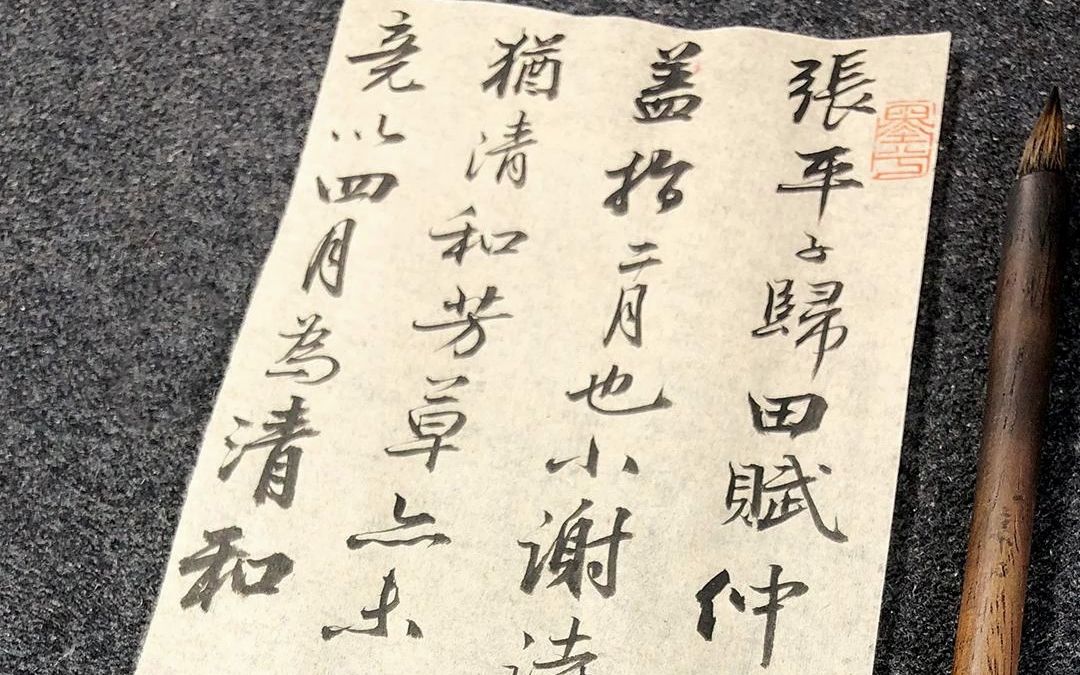 張平子歸田賦仲
盖指二月也小謝詩
猶清和芳草亦未
竟以四月為清和